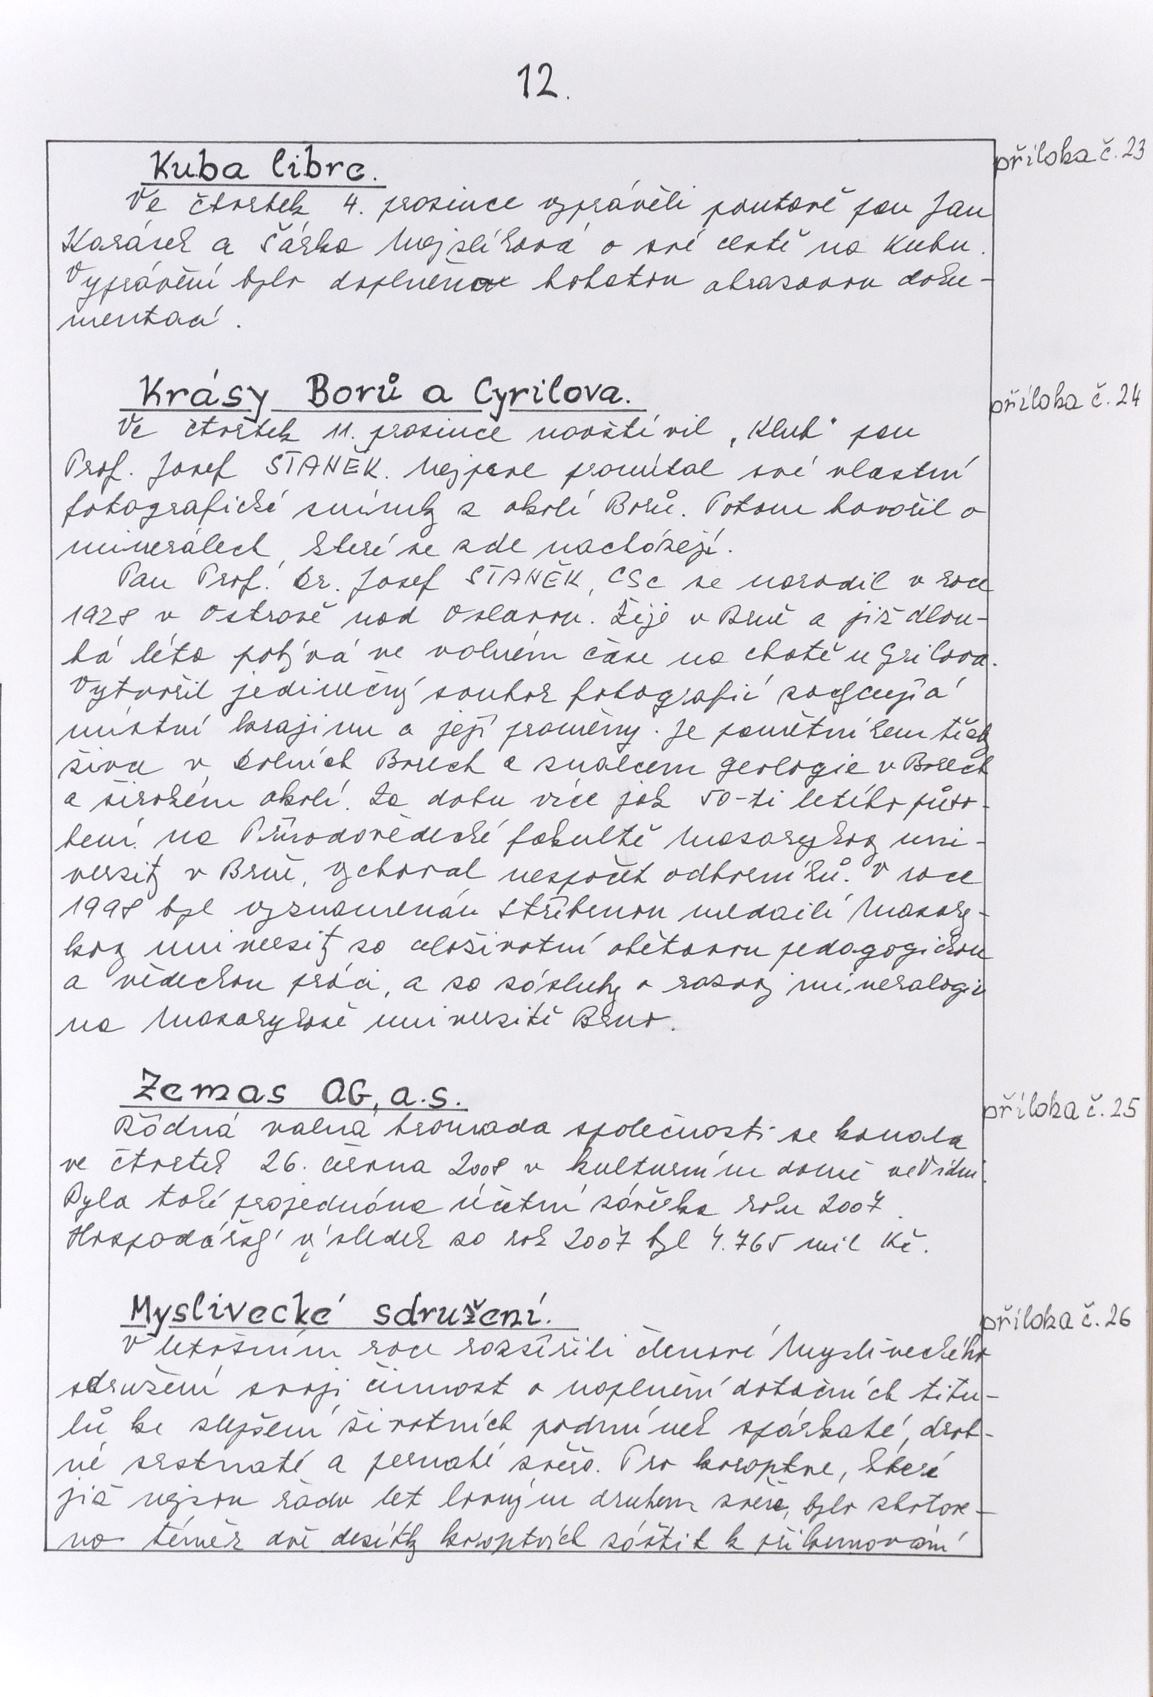 12.
Kuba libre.
příloha č. 23
Ve čtvrtek 4. prosince vyprávěli poutavě pan Jan
Karásek a Šárka Mejzlíková o své cestě na Kubu.
Vyprávění bylo doplněno bohatou obrazovou doku-
mentací.
Krásy Borů a Cyrilova.
příloha č. 24
Ve čtvrtek 11. prosince navštívil „Klub" pan
Prof. Josef STANĚK. Nejprve promítal své vlastní
fotografické snímky z okolí Borů. Potom hovořil o
minerálech, které se zde nacházejí.
Pan Prof. Dr. Josef STANĚK, CSc se narodil v roce
1928 v Ostrově nad Oslavou. Žije v Brně a již dlou-
há léta pobývá ve volném čase na chatě u Cyrilova.
Vytvořil jedinečný soubor fotografií zachycující
místní krajinu a její proměny. Je pamětníkem těžby
živce v Dolních Borech a znalcem geologie v Borech
a širokém okolí. Za dobu více jak 50-ti letého půso-
bení na Přírodovědecké fakultě Masarykovy uni-
verzity v Brně, vychoval nespočet odborníků. V roce
1998 byl vyznamenán stříbrnou medailí Masary-
kovy univerzity za celoživotní obětavou pedagogickou
a vědeckou práci, a za zásluhy o rozvoj mineralogie
na Masarykově univerzitě Brno.
Zemas AG, a.s.
příloha č. 25
Řádná valná hromada společnosti se konala
ve čtvrtek 26. června 2008 v kulturním domě ve Vídni.
Byla také projednána účetní závěrka roku 2007.
Hospodářský výsledek za rok 2007 byl 4.765 mil Kč.
Myslivecké sdružení.
příloha č. 26
V letošním roce rozšířili členové Mysliveckého
sdružení svoji činnost o naplnění dotačních titu-
lů ke zlepšení životních podmínek spárkaté, drob-
né srstnaté a pernaté zvěře. Pro koroptve, které
již nejsou řadu let lovným druhem zvěře, bylo zhotove-
no téměř dvě desítky koroptvích záštit k přikrmování